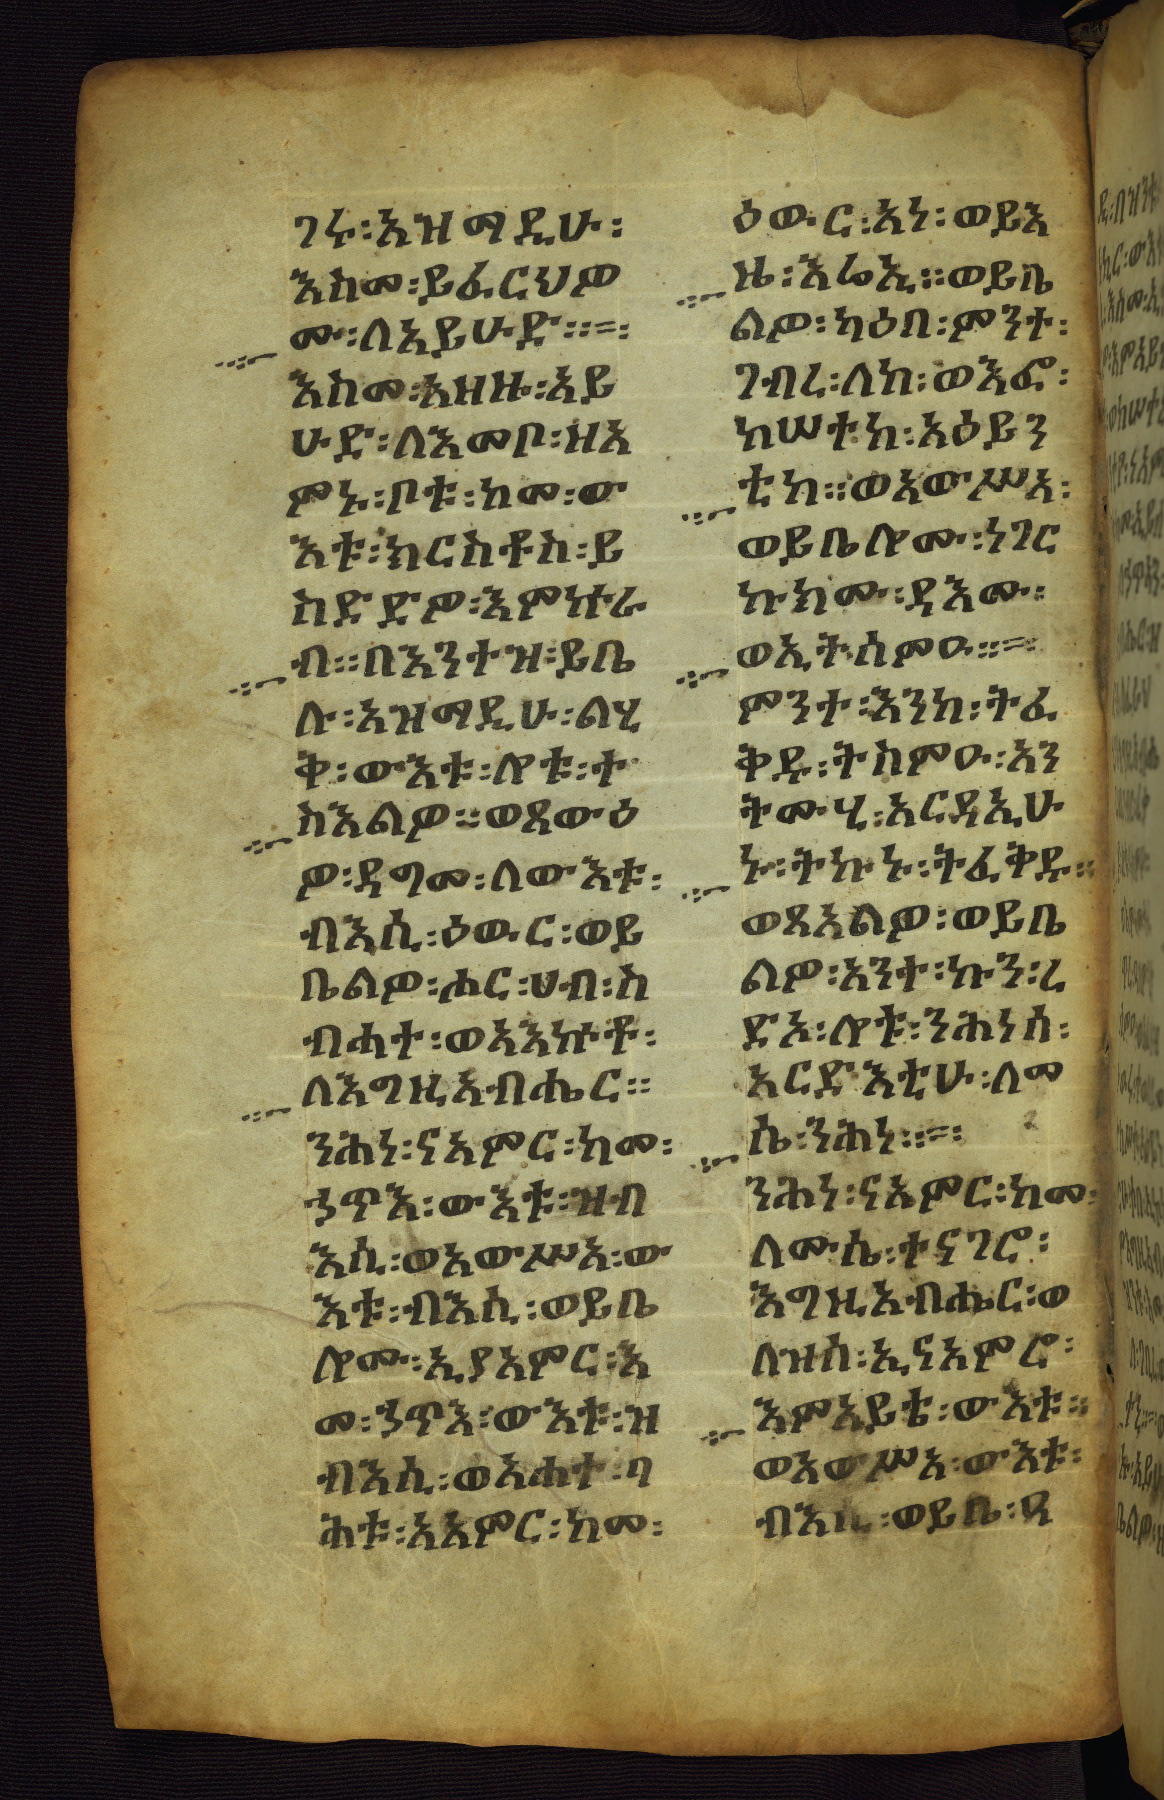 ገሩ፡አዝማዲሁ፡
እስመ፡ይፈርህዎ
ሙ፡ለአይሁድ፡፡=፡
እስመ፡አዘዙ፡አይ
ሁድ፡ለእመቦ፡ዘአ
ምኑ፡ቦቱ፡ከመ፡ው
እቱ፡ክርስቶስ፡ይ
ስድድዎ፡እምኵራ
ብ፡፡በእንተዝ፡ይቤ
ሉ፡አዝማዲሁ፡ልሂ
ቅ፡ውእቱ፡ሎቱ፡ተ
ስእልዎ፡፡ወጸውዕ
ዎ፡ዳግመ፡ለውእቱ፡
ብእሲ፡ዕዉር፡ወይ
ቤልዎ፡ሖር፡ሀብ፡ስ
ብሓተ፡ወአእኵቶ፡
ለእግዚአብሔር፡፡
ንሕነ፡ናአምር፡ከመ፡
ኃጥእ፡ውእቱ፡ዝብ
እሲ፡ወአውሥአ፡ው
እቱ፡ብእሲ፡ወይቤ
ሎሙ፡ኢያአምር፡እ
መ፡ኃጥእ፡ውእቱ፡ዝ
ብእሲ፡ወአሐተ፡ባ
ሕቱ፡አአምር፡ከመ፡
ዕዉር፡አነ፡ወይእ
ዜ፡እሬኢ፡፡ወይቤ
ልዎ፡ካዕበ፡ምንተ፡
ገብረ፡ለከ፡ወእፎ፡
ከሠተከ፡አዕይን
ቲከ፡፡ወአውሥአ፡
ወይቤሎሙ፡ነገር
ኩክሙ፡ዳእሙ፡
ወኢትሰምዑ፡፡=፡
ምንተ፡እንከ፡ትፈ
ቅዱ፡ትስምዑ፡አን
ትሙሂ፡አርዳኢሁ
ኑ፡ትኩኑ፡ትፈቅዱ፡፡
ወጸአልዎ፡ወይቤ
ልዎ፡አንተ፡ኩን፡ረ
ድአ፡ሎቱ፡ንሕነሰ፡
አርድእቲሁ፡ለመ
ሴ፡ንሕነ፡፡=፡
ንሕነ፡ናአምር፡ከመ፡
ለሙሴ፡ተናገሮ፡
እግዚአብሔር፡ወ
ለዝሰ፡ኢናአምሮ፡
እምአይቴ፡ውእቱ፡፡
ወአውሥአ፡ውእቱ፡
ብእሲ፡ወይቤ፡ዳ